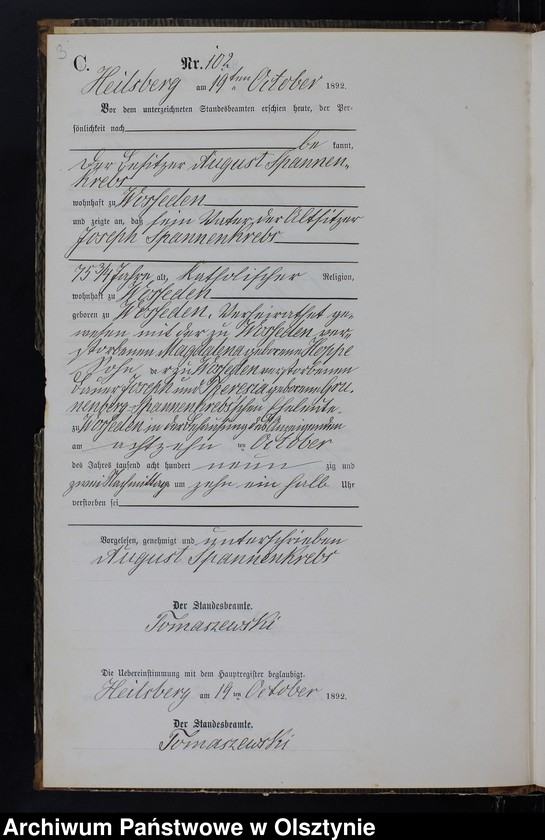 3
C.
Nr. 102
Heilsberg am 19 ten October 1892.
Vor dem unterzeichneten Standesbeamten erschien heute, der Per-
sönlichkeit nach
be kannt,
der Besitzer August Spannen-
krebs
wohnhaft zu Wosseden
und zeigte an, daß sein Vater, der Altsitzer
Joseph Spannenkrebs
75 3/4 Jahre alt, Katholischer Religion,
wohnhaft zu Wosseden
geboren zu Wosseden, Verheirathet ge-
wesen mit der zu Wosseden ver-
storbenen Magdalena geborenen Hoppe
Sohn der zu Wosseden verstorbenen
Bauer Joseph und Theresia geborene Gru-
nenberg Spannenkrebs'schen Eheleute.
zu Wosseden in der Behausung des Anzeigenden
am achtzehn ten October
des Jahres tausend acht hundert neun zig und
zwei Nachmittags um zehn ein halb Uhr
verstorben sei
Vorgelesen, genehmigt und unterschrieben
August Spannenkrebs
Der Standesbeamte.
Tomaszewski
Die Uebereinstimmung mit dem Hauptregister beglaubigt.
Heilsberg am 19 ten October 1892.
Der Standesbeamte.
Tomaszewski
Archiwum Państwowe w Olsztynie